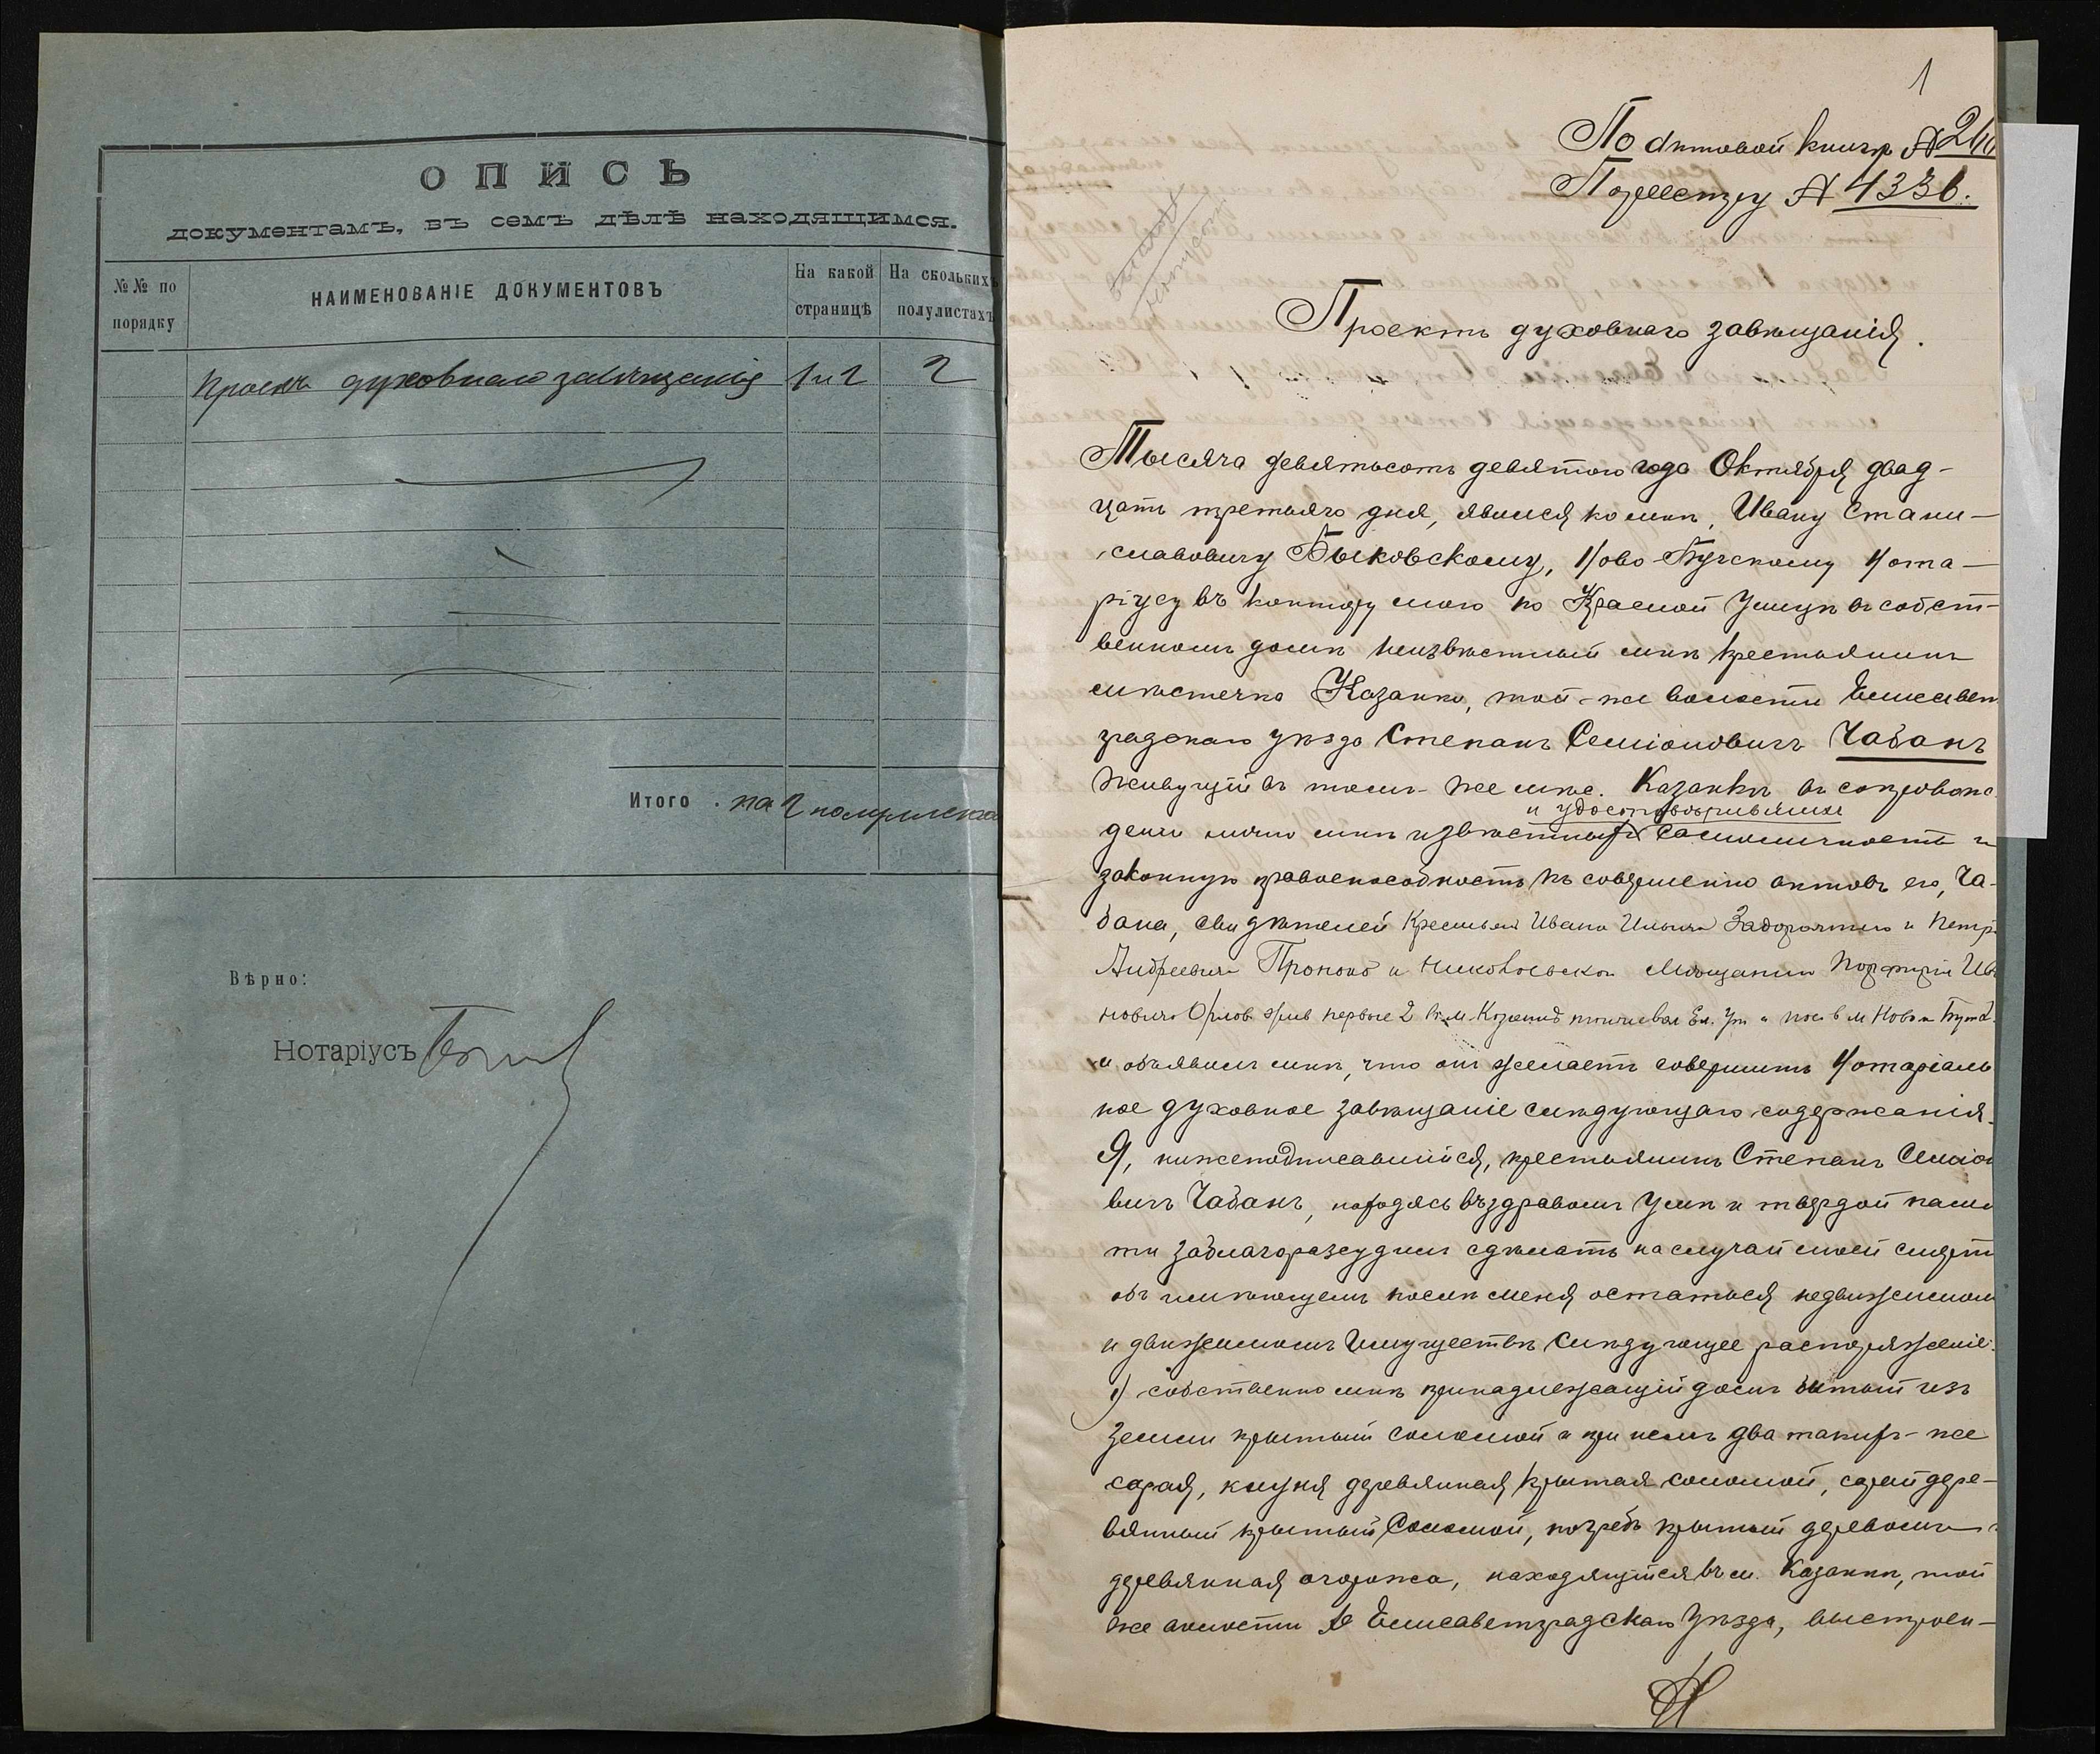 ОПИСЬ
документамъ, въ семъ дѣлѣ находящимся.
№№ по порядку
НАИМЕНОВАНІЕ ДОКУМЕНТОВЪ
На какой страницѣ
На сколькихъ полулистахъ
Проектъ духовнаго завѣщанія 1 и 2 2
Итого на 2 полулистахъ
Вѣрно:
Нотаріусъ
1
По актовой книгѣ №
По реестру № 4336.
Проектъ духовнаго завѣщанія.
Тысяча девятьсотъ девятого года Октября двад-
цать третьяго дня, явился ко мнѣ, Ивану Стани-
славовичу Быковскому, Ново-Бугскому Нота-
ріусу въ контору мою по Красной Улицѣ въ собст-
венномъ домѣ неизвѣстный мнѣ крестьянинъ
мѣстечка Казанки, той-же волости Елисавет
градскаго уѣзда Степанъ Семіоновичъ Чабанъ
живущій въ томъ-же мѣс. Казанкѣ въ сопровож-
и удостовѣрившихъ
деніи лично мнѣ извѣстныхъ самоличность и
законную правоспособность къ совершенію актовъ его, Ча-
бана, свидѣтелей Крестьян Ивана Ильича Задорожнего и Петра
Андреевича и Мещанина Порфирія Ива
новича Орлов жив первые 2 в м. Ел. Уѣ и в м Новом Буге
и объявилъ мнѣ, что онъ желаетъ совершить Нотаріаль
ное духовное завѣщаніе слѣдующаго содержанія.
Я, нижеподписавшійся, крестьянинъ Степанъ Семіоно
вичъ Чабанъ, находясь въ здравомъ умѣ и твердой памя
ти заблагоразсудилъ сдѣлать на случай моей смерти
объ имѣющемъ послѣ меня остаться недвижимомъ
и движимомъ имуществѣ слѣдующее распоряженіе:
1) собственно мнѣ принадлежащій домъ битый изъ
земли крытый соломой и при немъ два такихъ-же
сарая, кухня деревянная крытая соломой, сарай дере-
вянный крытый соломой, погребъ крытый деревомъ и
деревянная огорожа, находящійся въ м. Казанкѣ, той
же волости Елисаветградскаго Уѣзда, выстроен-